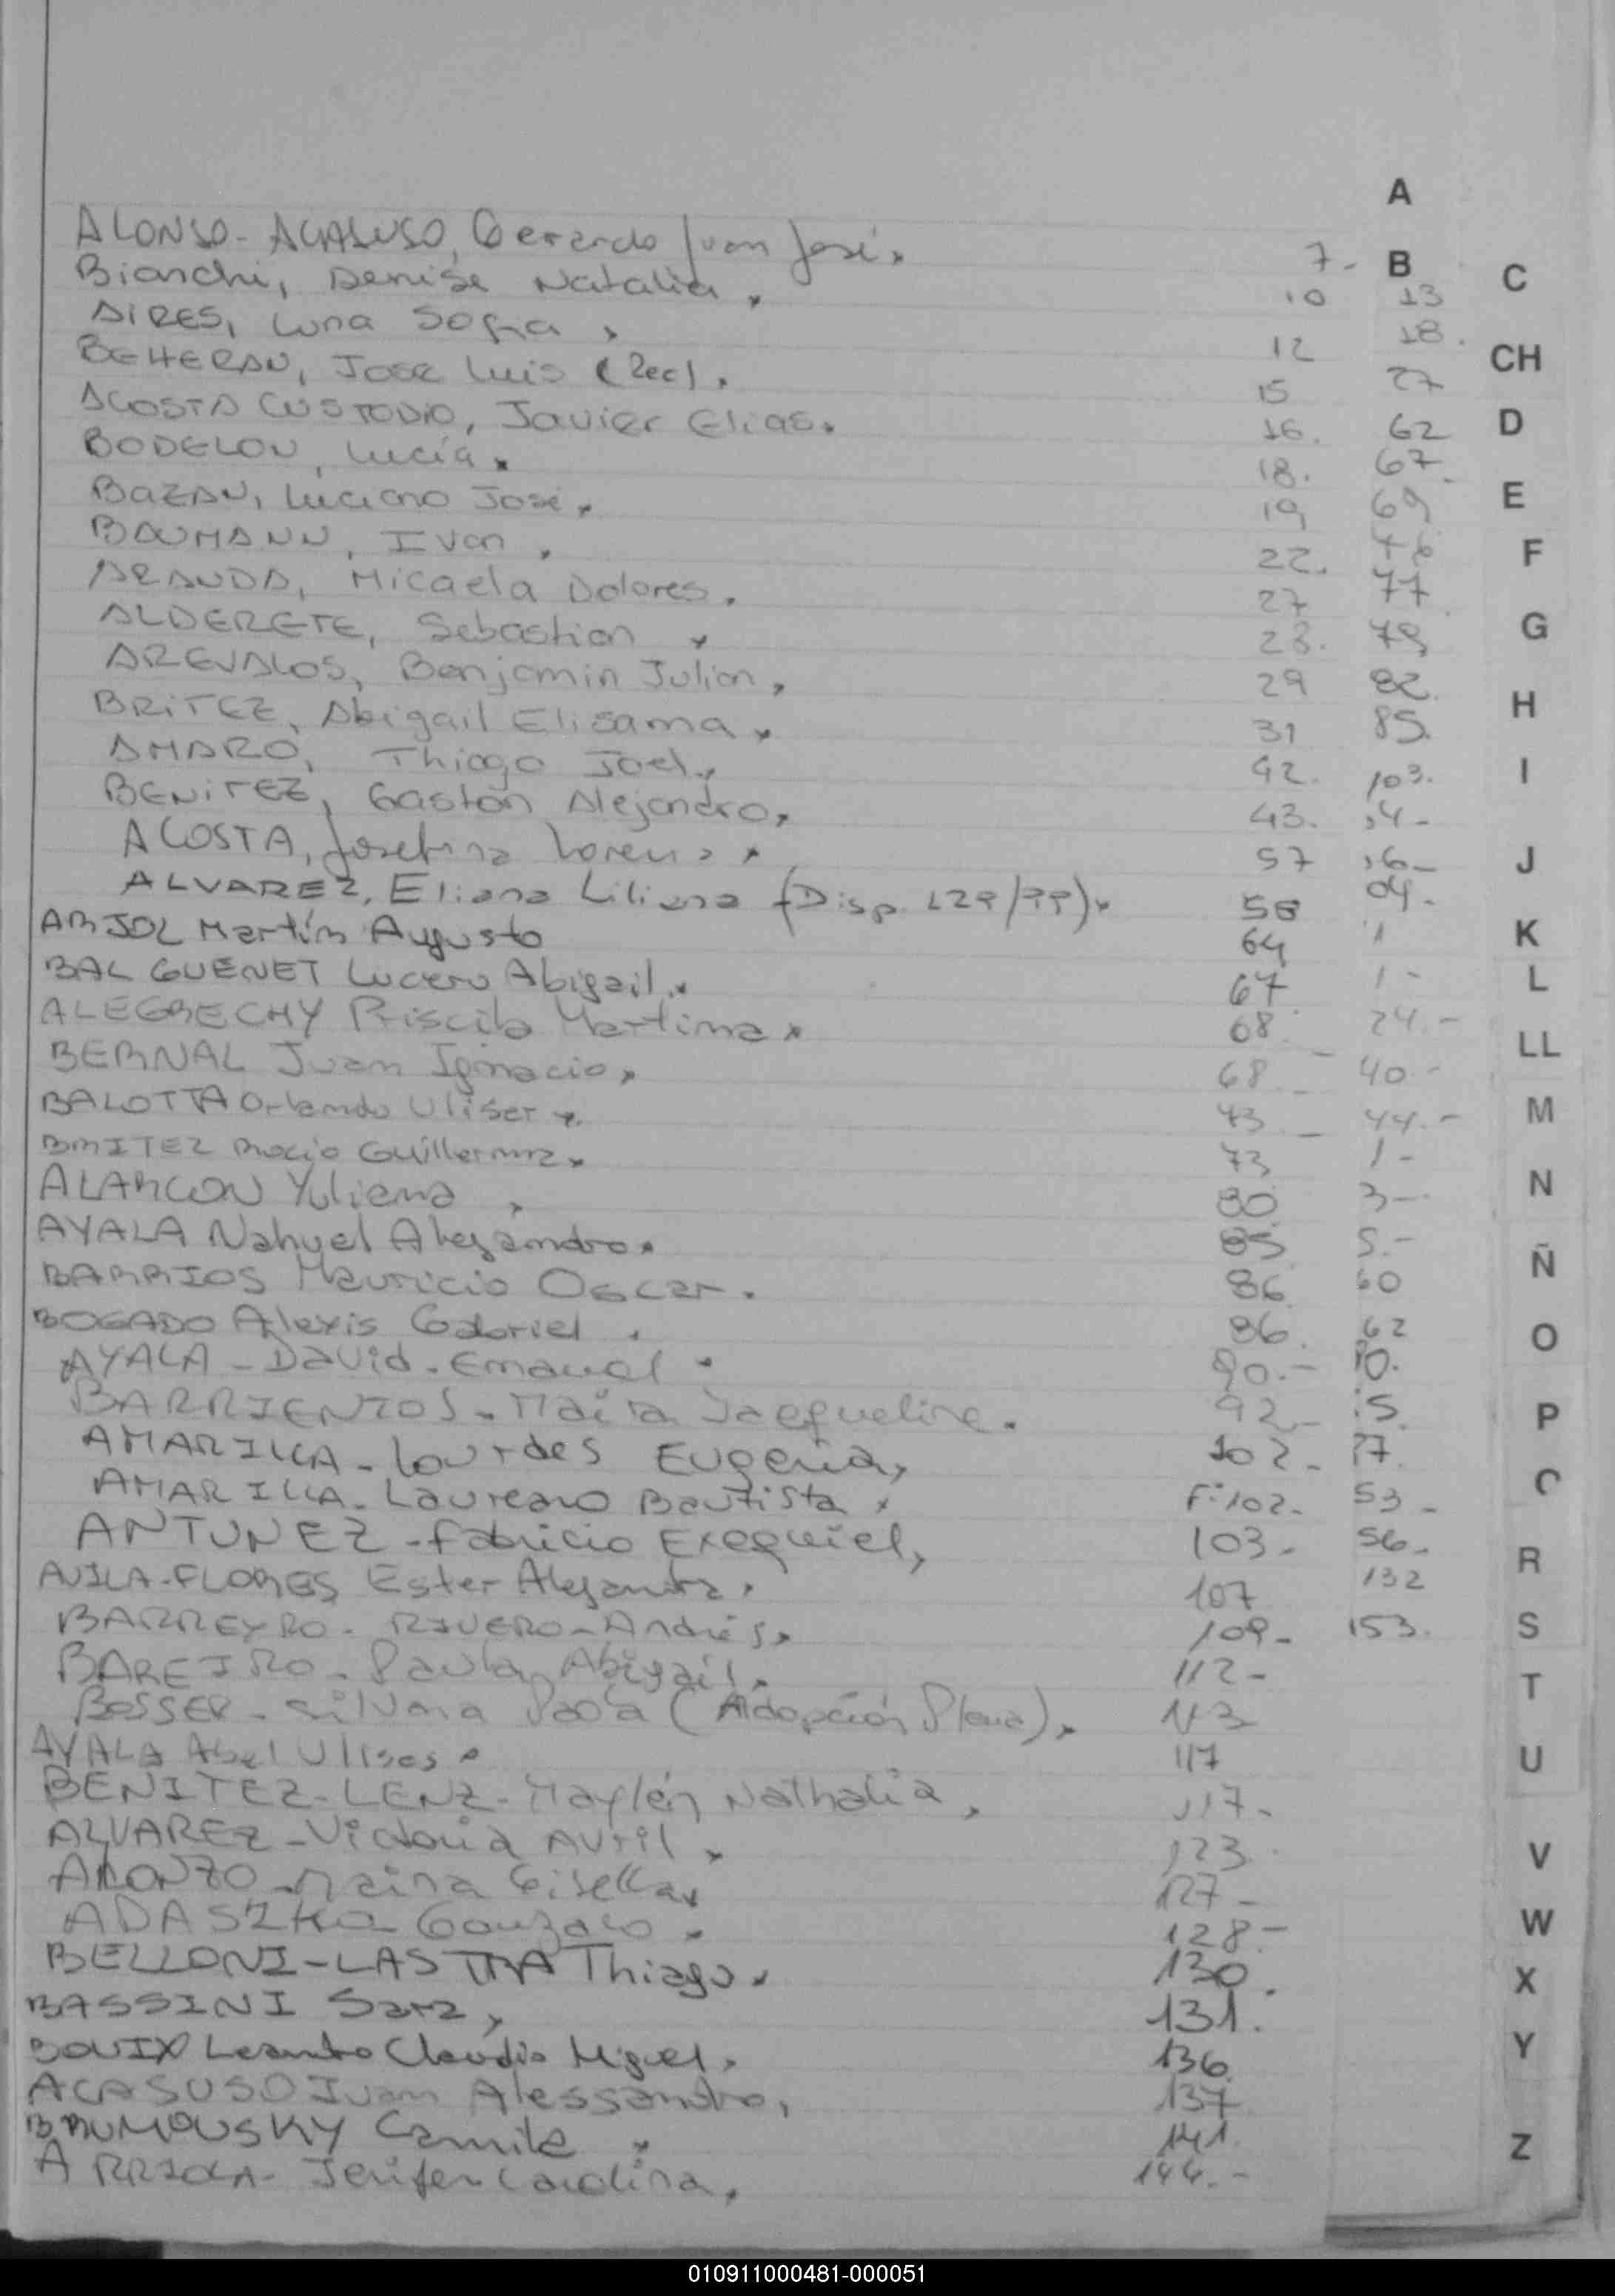 A
ALONSO - ACASUSO, Gerardo Juan José. 7.-
B C
Bianchi, Denise Natalia. 10 13
AIRES, Luna Sofia. 12 18.
CH
BEHERAN, Jose Luis (Rec). 15 27
ACOSTA CUSTODIO, Javier Elias. 16. 62 D
BODELON, Lucía. 18. 67.
BAZAN, Luciano José. 19 69 E
BAUMANN, Ivan. 22. F
ARANDA, Micaela Dolores. 27 77
ALDERETE, Sebastian 28. 79 G
AREVALOS, Benjamin Julian, 29 82.
BRITEZ, Abigail Elisama. 31 85. H
AMARO, Thiago Joel. 42. 103. I
BENITEZ, Gastón Alejandro, 43. 14-
ACOSTA, Josefina Lorena 57 16- J
ALVAREZ, Eliana Liliana (Disp. 129/99). 58 04.
ARJOL Martín Augusto 64 1 K
BAL GUENET Lucero Abigail. 67 1- L
ALEGRECHY Priscila Martina 68 24.-
LL
BERNAL Juan Ignacio, 68 40.-
BALOTTA Orlando Uliser 73 44.- M
BRITEZ Rocio Guillermina 73 1-
ALARCON Yuliana, 80 3- N
AYALA Nahuel Alejandro. 85 5.-
BARRIOS Mauricio Oscar. 86 60 Ñ
BOGADO Alexis Gabriel. 86. 62 O
AYALA - David - Emanuel. 90.- 10.
BARRIENTOS - Maira Jacqueline. 92- 15. P
AMARILLA - Lourdes Eugenia, 102- 27.
AMARILLA - Laureano Bautista. F:102- 53-
ANTUNEZ - Fabricio Exequiel, 103- 56-
AVILA-FLORES Ester Alejandra. 107 132 R
BARREYRO - RIVERO - Andrés. 109- 153. S
BAREIRO - Paula Abigail. 112- T
BOSSER - Silvana Paola (Adopción Plena). 113
AYALA Abel Ulises. 117 U
BENITEZ-LENZ - Maylén Nathalia, 117-
ALVAREZ - Victoria Avril. 123. V
ALONZO - Maira Gisella. 127-
ADASZKO Gonzalo. 128.- W
BELLONI-LASTRA Thiago. 130. X
BASSINI Sara, 131.
BOUIX Leandro Claudio Miguel. 136. Y
ACASUSO Ivan Alessandro, 137
BRUMOVSKY Camila 141. Z
ARRIOLA - Jenifer Carolina. 144.-
010911000481-000051